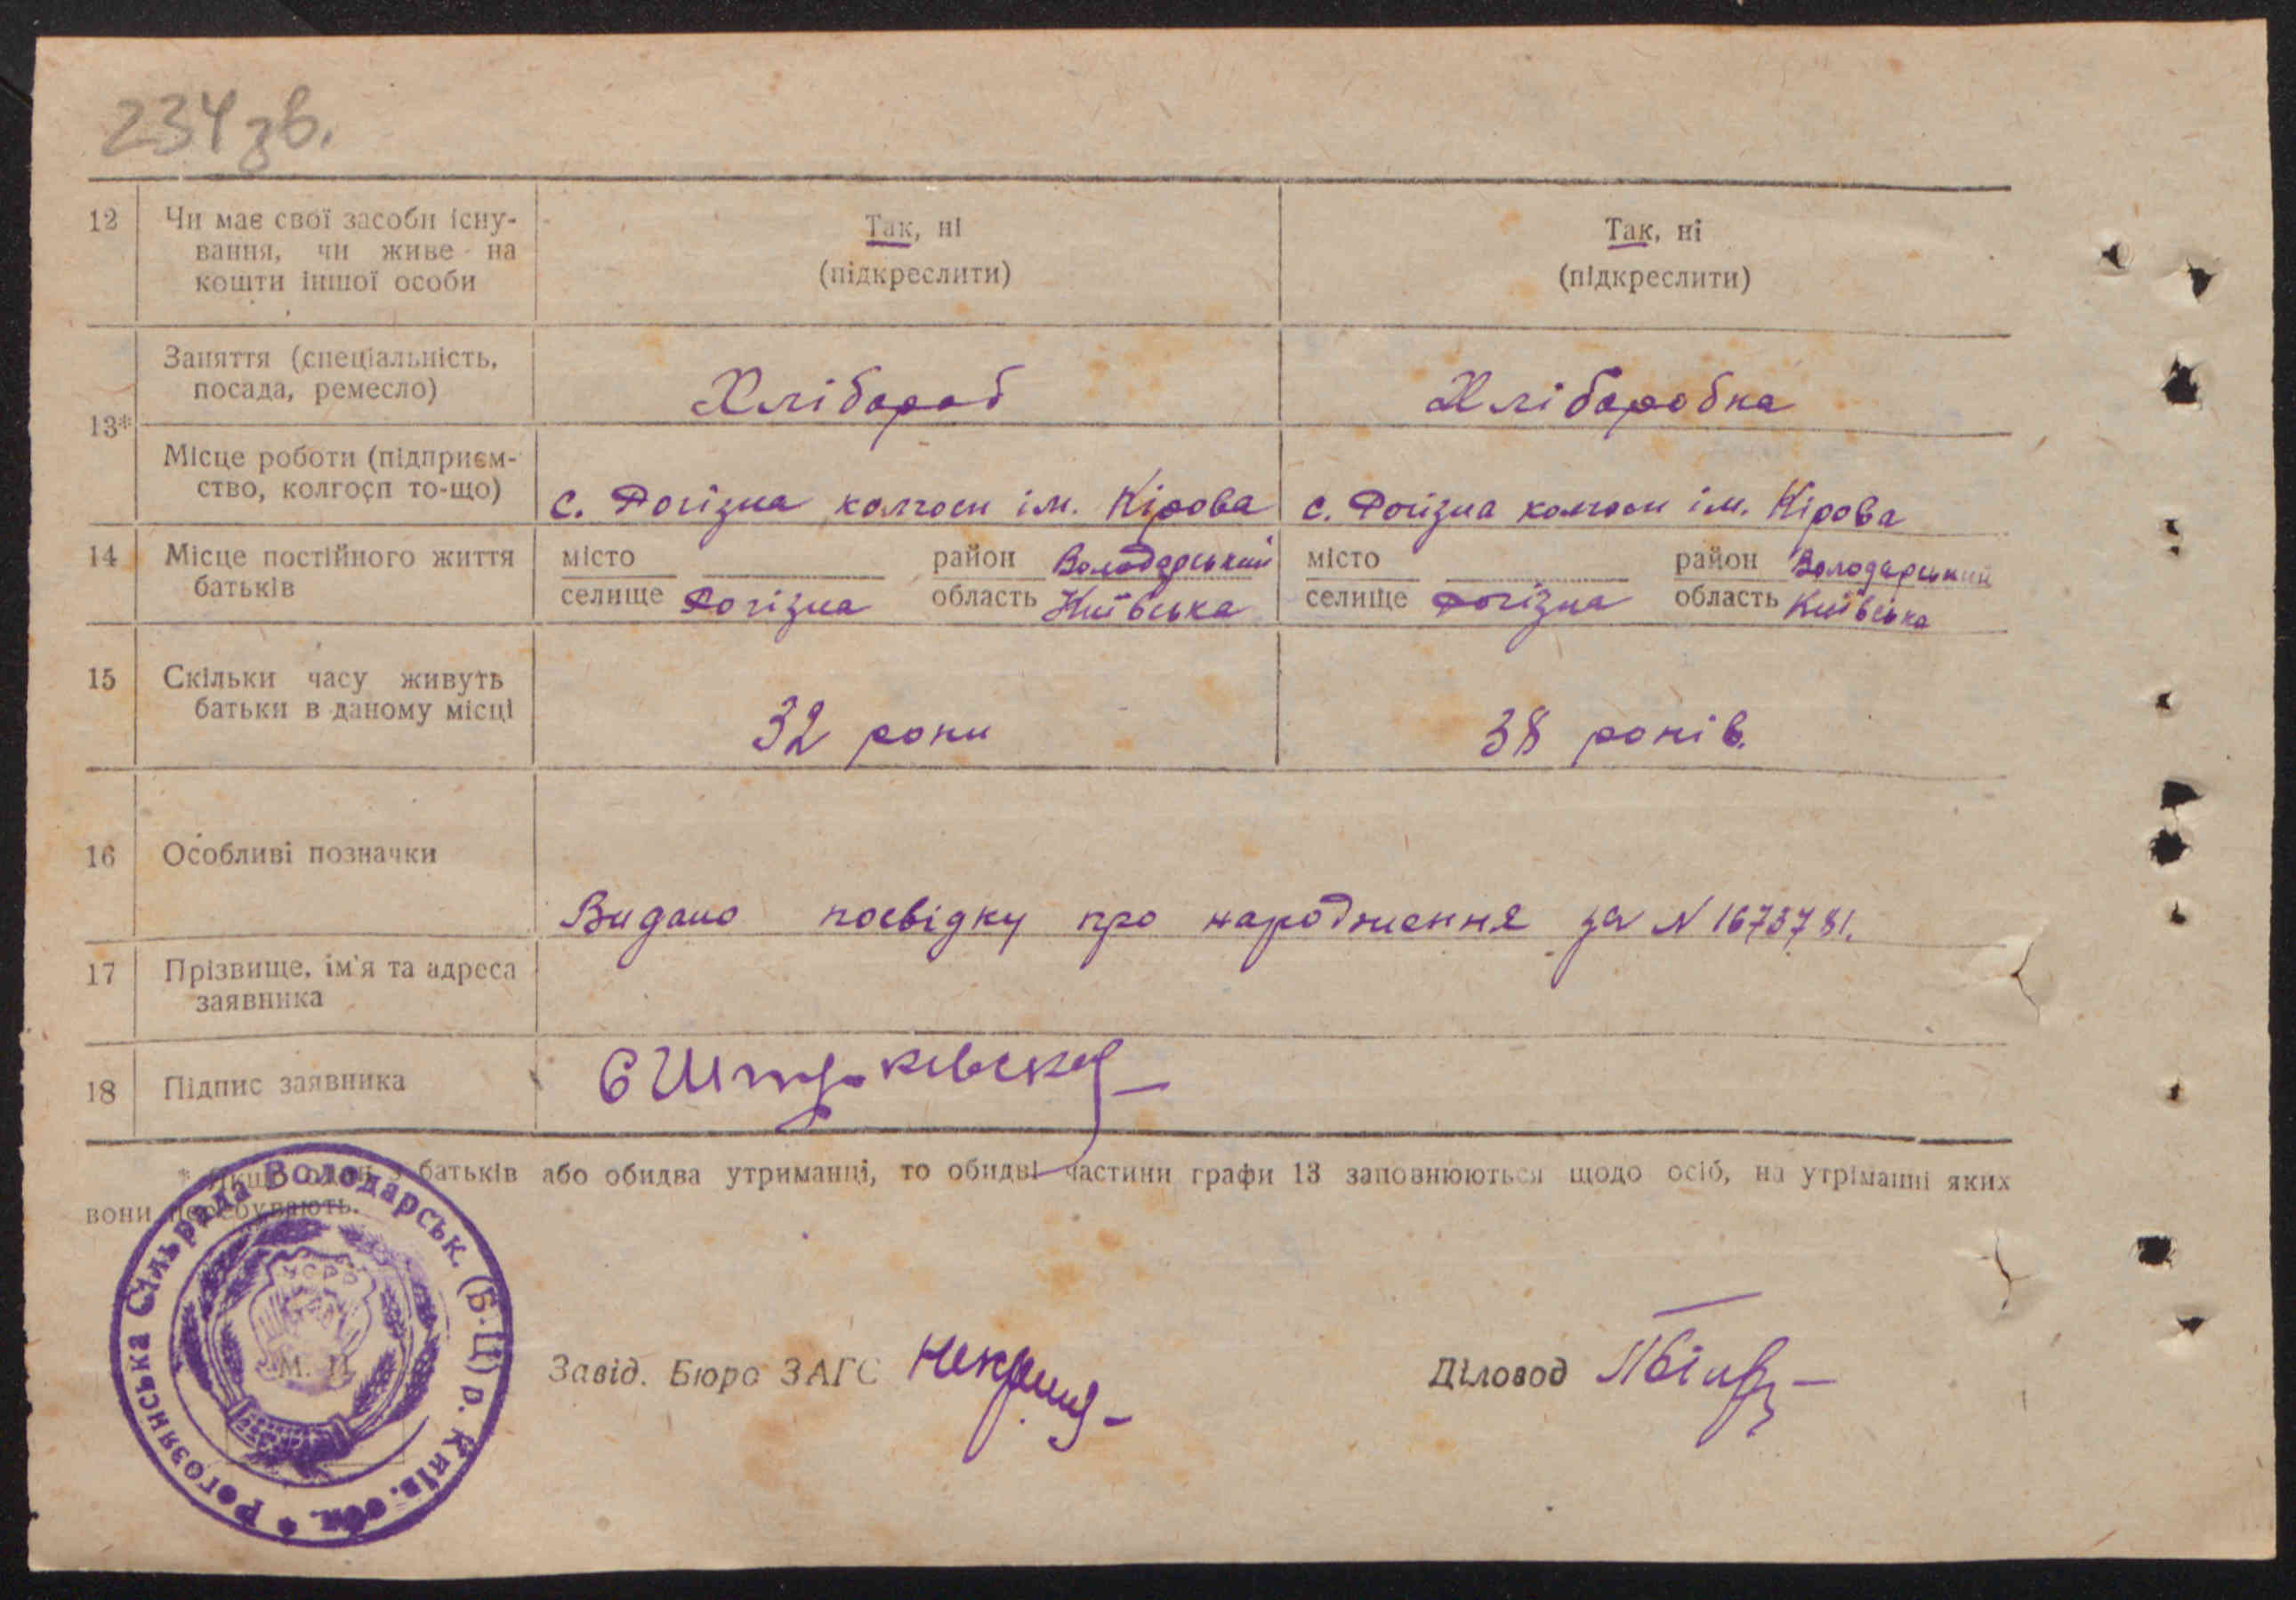 234 зв.
12 Чи має свої засоби існу-
вання, чи живе на
кошти іншої особи
Так, ні
(підкреслити)
Так, ні
(підкреслити)
13*
Заняття (спеціальність,
посада, ремесло)
Хлібороб
Хліборобка
Місце роботи (підприєм-
ство, колгосп то-що)
с. Рогізна колгосп ім. Кірова
с. Рогізна колгосп ім. Кірова
14 Місце постійного життя
батьків
місто район Володарський
селище Рогізна область Київська
місто район Володарський
селище Рогізна область Київська
15 Скільки часу живуть
батьки в даному місці
32 роки
38 років.
16 Особливі позначки
Видано посвідку про народження за N 1673781.
17 Прізвище, ім'я та адреса
заявника
18 Підпис заявника
* Якщо один з батьків або обидва утриманці, то обидві частини графи 13 заповнюються щодо осіб, на утріманні яких
вони перебувають.
Рогозянська Сільрада Володарськ. (Б-Ц) р. Київ. обл.
УСРР
М. П.
Завід. Бюро ЗАГС
Діловод